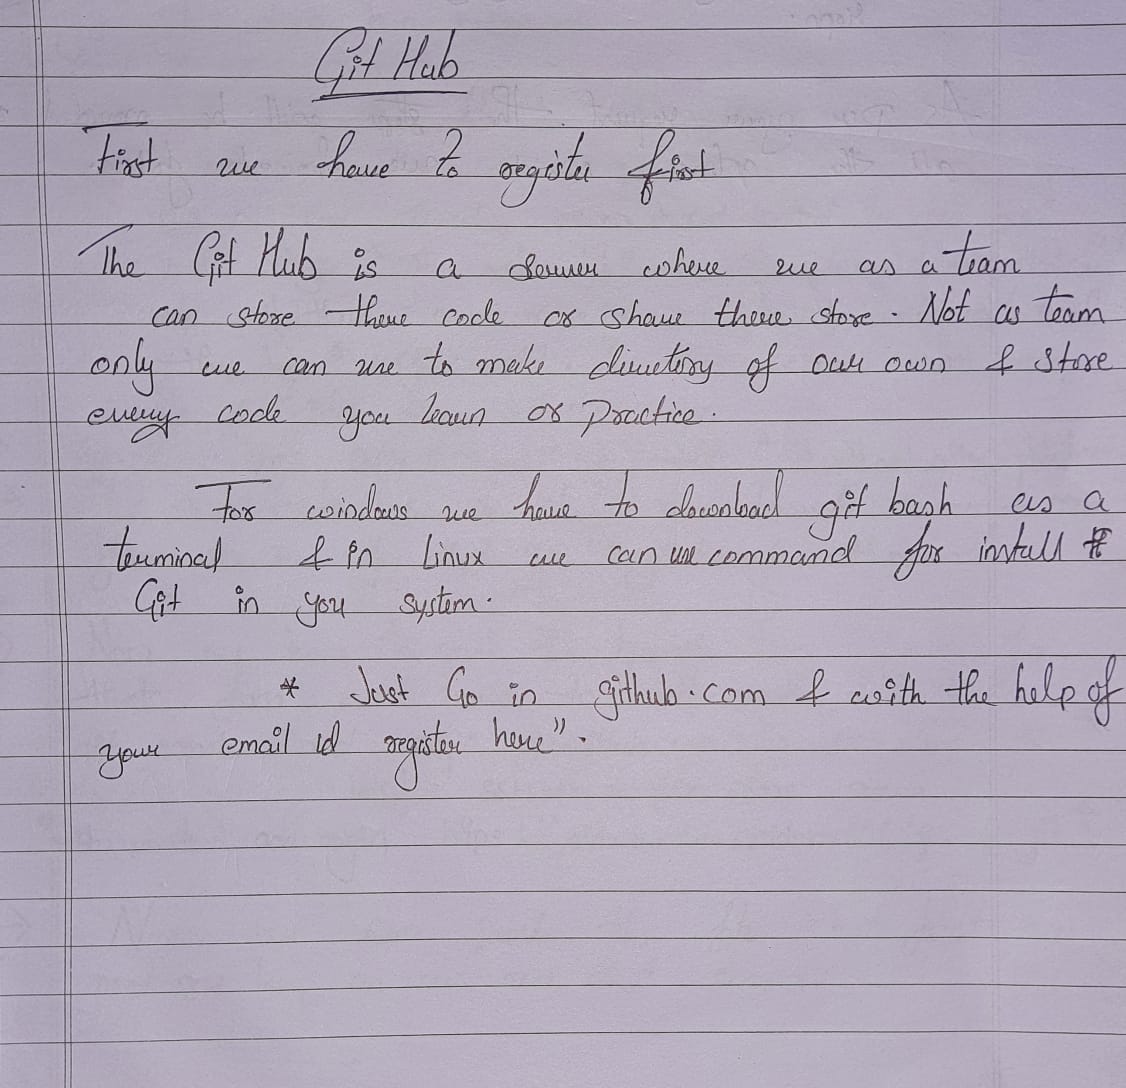 Git Hub
First we have to register first
The Git Hub is a server where we as a team
can store there code or share there store. Not as team
only we can use to make directory of our own & store
every code you learn or Practice.
For windows we have to download git bash as a
terminal & in Linux we can use command for install
Git in you system.
* Just Go in github.com & with the help of
your email id register here".